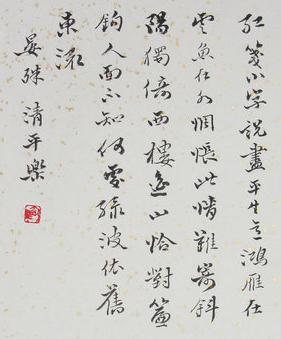 紅箋小字說盡平生意鴻雁在
雲魚在水惆悵此情難寄斜
陽獨倚西樓遙山恰對簾
鉤人面不知何處綠波依舊
東流
晏殊清平樂